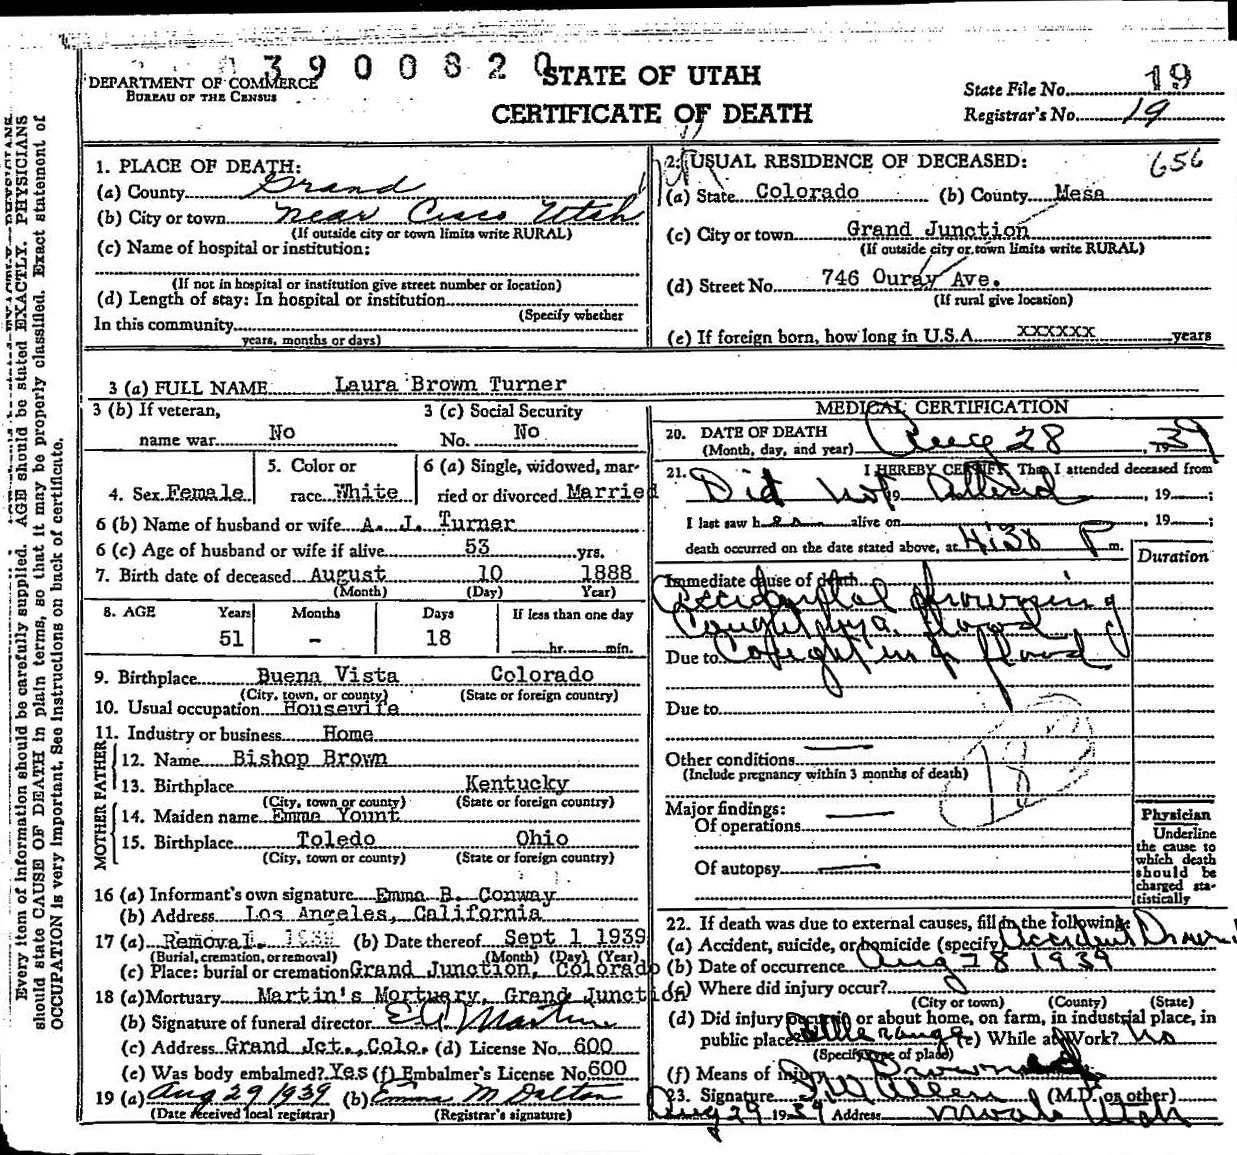 3900820
DEPARTMENT OF COMMERCE
BUREAU OF THE CENSUS
STATE OF UTAH
CERTIFICATE OF DEATH
State File No. 19
Registrar's No. 19
656
1. PLACE OF DEATH:
(a) County Grand
(b) City or town near Cisco Utah
(If outside city or town limits write RURAL)
(c) Name of hospital or institution:
(If not in hospital or institution give street number or location)
(d) Length of stay: In hospital or institution
(Specify whether
In this community
years, months or days)
2. USUAL RESIDENCE OF DECEASED:
(a) State Colorado (b) County Mesa
(c) City or town Grand Junction
(If outside city or town limits write RURAL)
(d) Street No. 746 Ouray Ave.
(If rural give location)
(e) If foreign born, how long in U.S.A. xxxxxx years
3 (a) FULL NAME Laura Brown Turner
3 (b) If veteran, name war No
3 (c) Social Security No. No
4. Sex Female
5. Color or race White
6 (a) Single, widowed, married or divorced Married
6 (b) Name of husband or wife A. J. Turner
6 (c) Age of husband or wife if alive 53 yrs.
7. Birth date of deceased August 10 1888
(Month) (Day) Year)
8. AGE Years Months Days If less than one day
51 - 18 hr. min.
9. Birthplace Buena Vista Colorado
(City, town, or county) (State or foreign country)
10. Usual occupation Housewife
11. Industry or business Home
FATHER
12. Name Bishop Brown
13. Birthplace Kentucky
(City, town or county) (State or foreign country)
MOTHER
14. Maiden name Emma Yount
15. Birthplace Toledo Ohio
(City, town or county) (State or foreign country)
16 (a) Informant's own signature Emma B. Conway
(b) Address Los Angeles, California
17 (a) Removal. (b) Date thereof Sept 1 1939
(Burial, cremation, or removal) (Month) (Day) (Year)
(c) Place: burial or cremation Grand Junction, Colorado
18 (a) Mortuary Martin's Mortuary, Grand Junction
(b) Signature of funeral director Martin
(c) Address Grand Jct., Colo. (d) License No. 600
(e) Was body embalmed? Yes (f) Embalmer's License No. 600
19 (a) Aug 29 1939 (b) Emma M Dalton
(Date received local registrar) (Registrar's signature)
MEDICAL CERTIFICATION
20. DATE OF DEATH
(Month, day, and year) Aug 28, 1939
21. I HEREBY CERTIFY, That I attended deceased from
Did not attend, 19 ;
I last saw h alive on , 19 ;
death occurred on the date stated above, at 4:30 P m.
Duration
Immediate cause of death
Accidental drowning
Caught by a flood
Due to Caught in a flood
Due to
Other conditions
(Include pregnancy within 3 months of death)
Major findings:
Of operations
Of autopsy
Physician
Underline
the cause to
which death
should be
charged sta-
tistically
22. If death was due to external causes, fill in the following:
(a) Accident, suicide, or homicide (specify Accident
(b) Date of occurrence Aug 28 1939
(c) Where did injury occur?
(City or town) (County) (State)
(d) Did injury occur in or about home, on farm, in industrial place, in
public place Cattle range (e) While at Work? No
(Specify type of place)
(f) Means of injury Drowned
23. Signature Allen (M.D. or other)
Aug 29 1939 Address Moab Utah
Every item of information should be carefully supplied. AGE should be stated EXACTLY. PHYSICIANS
should state CAUSE OF DEATH in plain terms, so that it may be properly classified. Exact statement of
OCCUPATION is very important. See instructions on back of certificate.